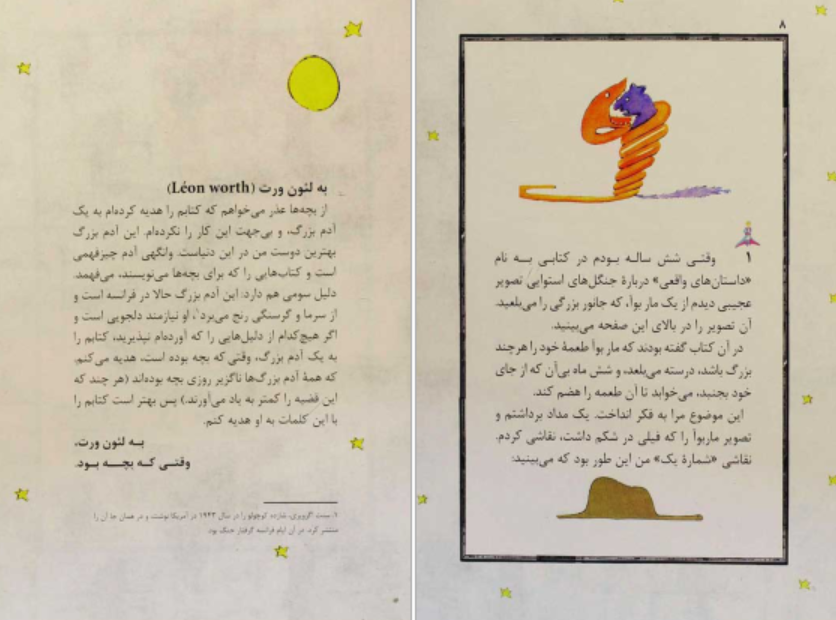 به لئون ورت (Léon worth)
از بچه‌ها عذر می‌خواهم که کتابم را هدیه کرده‌ام به یک
آدم بزرگ، و بی‌جهت این کار را نکرده‌ام. این آدم بزرگ
بهترین دوست من در این دنیاست. وانگهی آدم چیزفهمی
است و کتاب‌هایی را که برای بچه‌ها می‌نویسند، می‌فهمد.
دلیل سومی هم دارد: این آدم بزرگ حالا در فرانسه است و
از سرما و گرسنگی رنج می‌برد۱، او نیازمند دلجویی است و
اگر هیچ‌کدام از دلیل‌هایی را که آورده‌ام نپذیرید، کتابم را
به یک آدم بزرگ، وقتی که بچه بوده است، هدیه می‌کنم.
که همهٔ آدم بزرگ‌ها ناگزیر روزی بچه بوده‌اند (هر چند که
این قضیه را کمتر به یاد می‌آورند.) پس بهتر است کتابم را
با این کلمات به او هدیه کنم.
به لئون ورت،
وقتی که بچه بود.
۱. سنت اگزوپری، شازده کوچولو را در سال ۱۹۴۳ در آمریکا نوشت و در همان جا آن را
منتشر کرد. در آن ایام فرانسه گرفتار جنگ بود.
۸
۱ وقتی شش ساله بودم در کتابی به نام
«داستان‌های واقعی» دربارهٔ جنگل‌های استوایی تصویر
عجیبی دیدم از یک مار بوآ، که جانور بزرگی را می‌بلعید.
آن تصویر را در بالای این صفحه می‌بینید.
در آن کتاب گفته بودند که مار بوآ طعمهٔ خود را هرچند
بزرگ باشد، درسته می‌بلعد، و شش ماه بی‌آن که از جای
خود بجنبد، می‌خوابد تا آن طعمه را هضم کند.
این موضوع مرا به فکر انداخت. یک مداد برداشتم و
تصویر ماربوآ را که فیلی در شکم داشت، نقاشی کردم.
نقاشی «شمارهٔ یک» من این طور بود که می‌بینید: